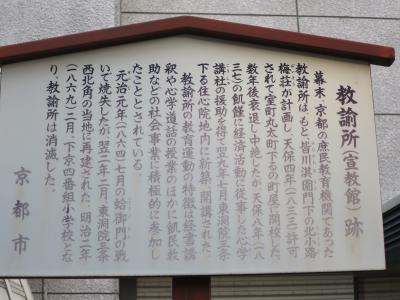 教諭所(宣教館)跡
幕末、京都の庶民教育機関であった
教諭所はもと皆川淇園門下の北小路
梅荘が計画し、天保四年(一八三三)許可
されて室町丸太町下るの町屋で開校した。
数年後衰退し中絶したが、天保八年(一八
三七)の飢饉に経済活動に従事した心学
講社の援助を得て翌九年七月東洞院三条
下る住心院地内に新築、開講された。
教諭所の教育運動の特徴は経書講
釈や心学道話の授業のほかに飢民救
助などの社会事業に積極的に参加し
たこととされている。
元治元年(一八六四)七月の蛤御門の戦
いで焼失したが、翌二年二月、東洞院三条
西北角の当地に再建された。明治二年
(一八六九)二月、下京四番組小学校とな
り、教諭所は消滅した。
京都市